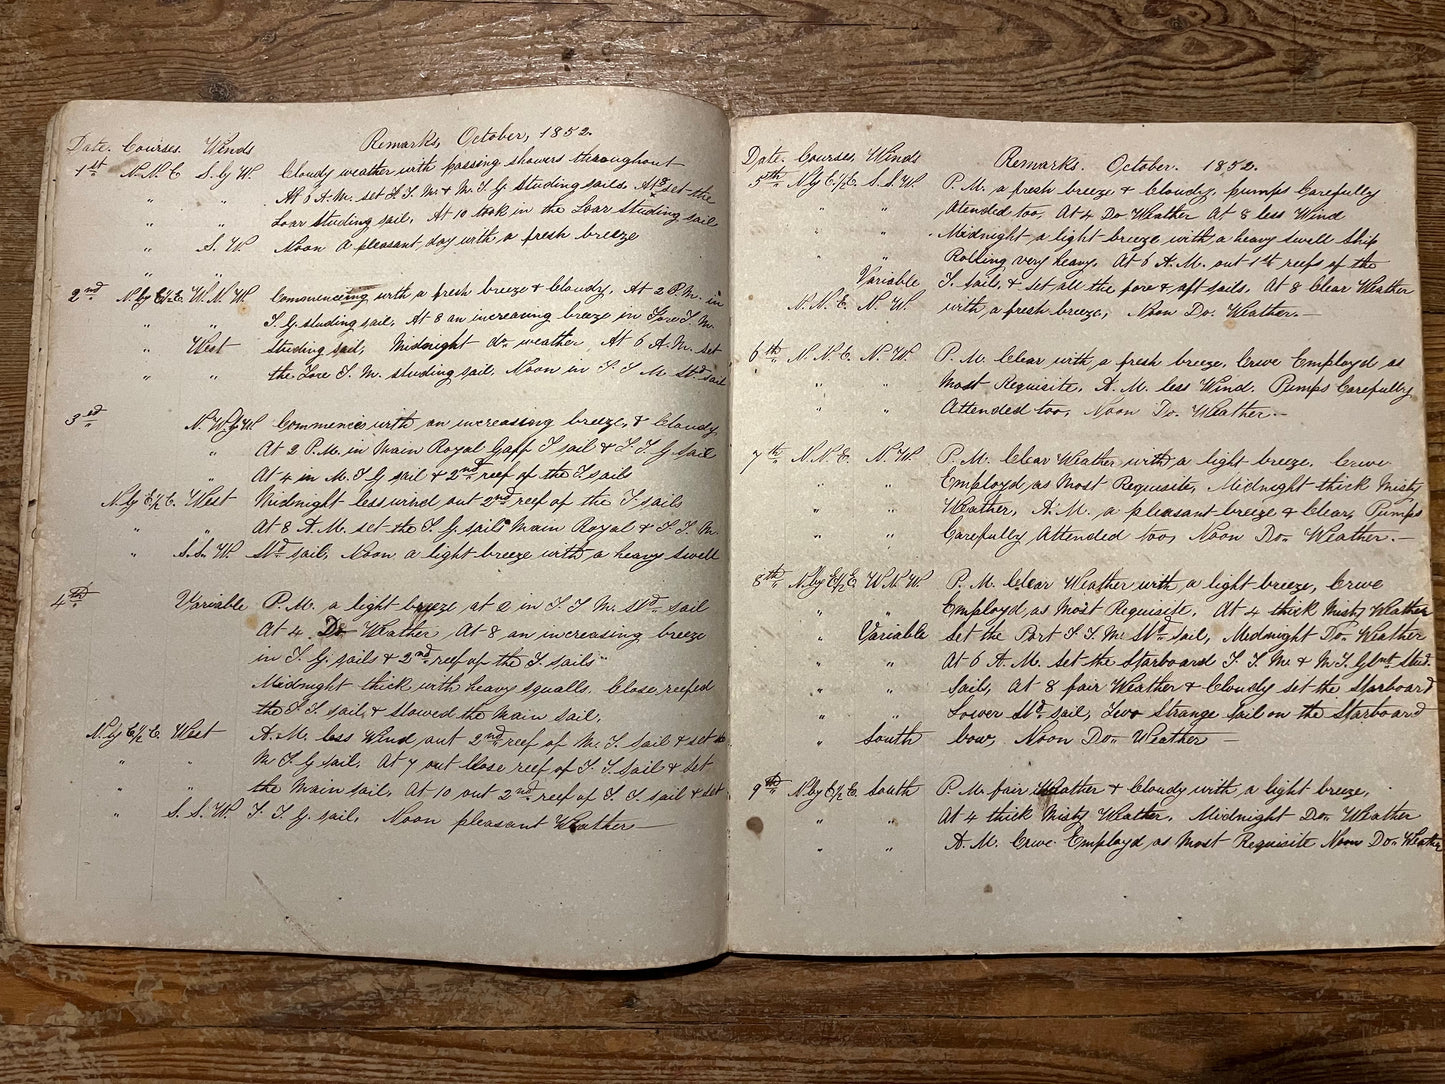 Date. Courses. Winds Remarks, October, 1852.
1st N.N.E S.by W. Cloudy weather with passing showers throughout
" " At 6 A.M. set F.T.M. & M.T.G Studding sails. At 7 set the
" " Loar studing sail, At 10 took in the Loar Studing sail
" S.W. Noon a pleasant day with a fresh breeze
" "
2nd N by E½E W.N.W. Commenceing with a fresh breeze & Cloudy, At 2 P.M. in
" " T.G. studing sail, At 8 an increasing breeze in Fore T.M.
" West studing sail, Midnight do. weather, At 6 A.M. set
" " the Fore T.M. studing sail, Noon in F.T.M Std sail
3rd N.W.by W. Commences with an increasing breeze, & Cloudy,
" At 2 P.M. in Main Royal Gaff T sail & F.T.G sail
" At 4 in M.T.G sail & 2nd reef of the T.sails
N.by E½E. West Midnight less wind out 2nd reef of the T sails
" " At 8 A.M. set the T.G. sails Main Royal & F.T.M.
" S.S.W Std sail, Noon a light breeze with a heavy swell
4th Variable P.M. a light breeze, at 2 in F.T.M. Std sail
At 4 Do Weather At 8 an increasing breeze
in T.G. sails & 2nd reef of the T.sails
Midnight thick with heavy squalls. Close reefed
the F.T sail, & stowed the Main sail,
N.by E½E West A.M. less Wind out 2nd reef of M.T. sail & set
" " M T.G sail, At 7 out Close reef of F.T.sail & Set
" " the Main sail, At 10 out 2nd reef of F.T. sail & set
" S.S.W. F.T.G. sail, Noon pleasant Weather
Date. Courses, Winds Remarks. October. 1852.
5th N by E½E. S.S.W. P.M. a fresh breeze & Cloudy, pumps Carefully
" " Atended too, At 4 Do Weather At 8 less Wind
" " Midnight a light breeze with a heavy swell Ship
" " Rolling very heavy. At 6 A.M. out 1st reefs of the
Variable T. sails, & set all the fore & aft sails, At 8 Clear Weather
N.N.E. N.W. with a fresh breeze, Noon Do. Weather.
6th N.N.E N.W. P.M. Clear with a fresh breeze, Crwe Employd as
" " Most Requisite, A.M. less Wind, Pumps Carefully
" " Attended too, Noon Do Weather.
7th N.N.E. N.W P.M. Clear Weather with a light breeze, Crwe
" " Employd as Most Requisite, Midnight thick Misty
" " Weather, A.M. a pleasant breeze & Clear, Pumps
" " Carefully Attended too, Noon Do Weather.
8th N.by E½E W.N.W. P.M. Clear Weather with a light breeze, Crwe
" " Employd as Most Requisite, At 4 thick Misty Weather
" Variable Set the Port F.T.M. Std sail, Midnight Do Weather
" " At 6 A.M. Set the Starboard F.T.M. & M.T. Glnt Stud.
" " Sail, At 8 fair Weather & Cloudy set the Starboard
" " Lower Std sail, Two Strange Sail on the Starboard
" South bow, Noon Do Weather
9th N.by E½E. South P.M. fair Weather & Cloudy with a light breeze,
" " At 4 thick Misty Weather, Midnight Do Weather
" " A.M. Crwe Employd as Most Requisite Noon Do Weather